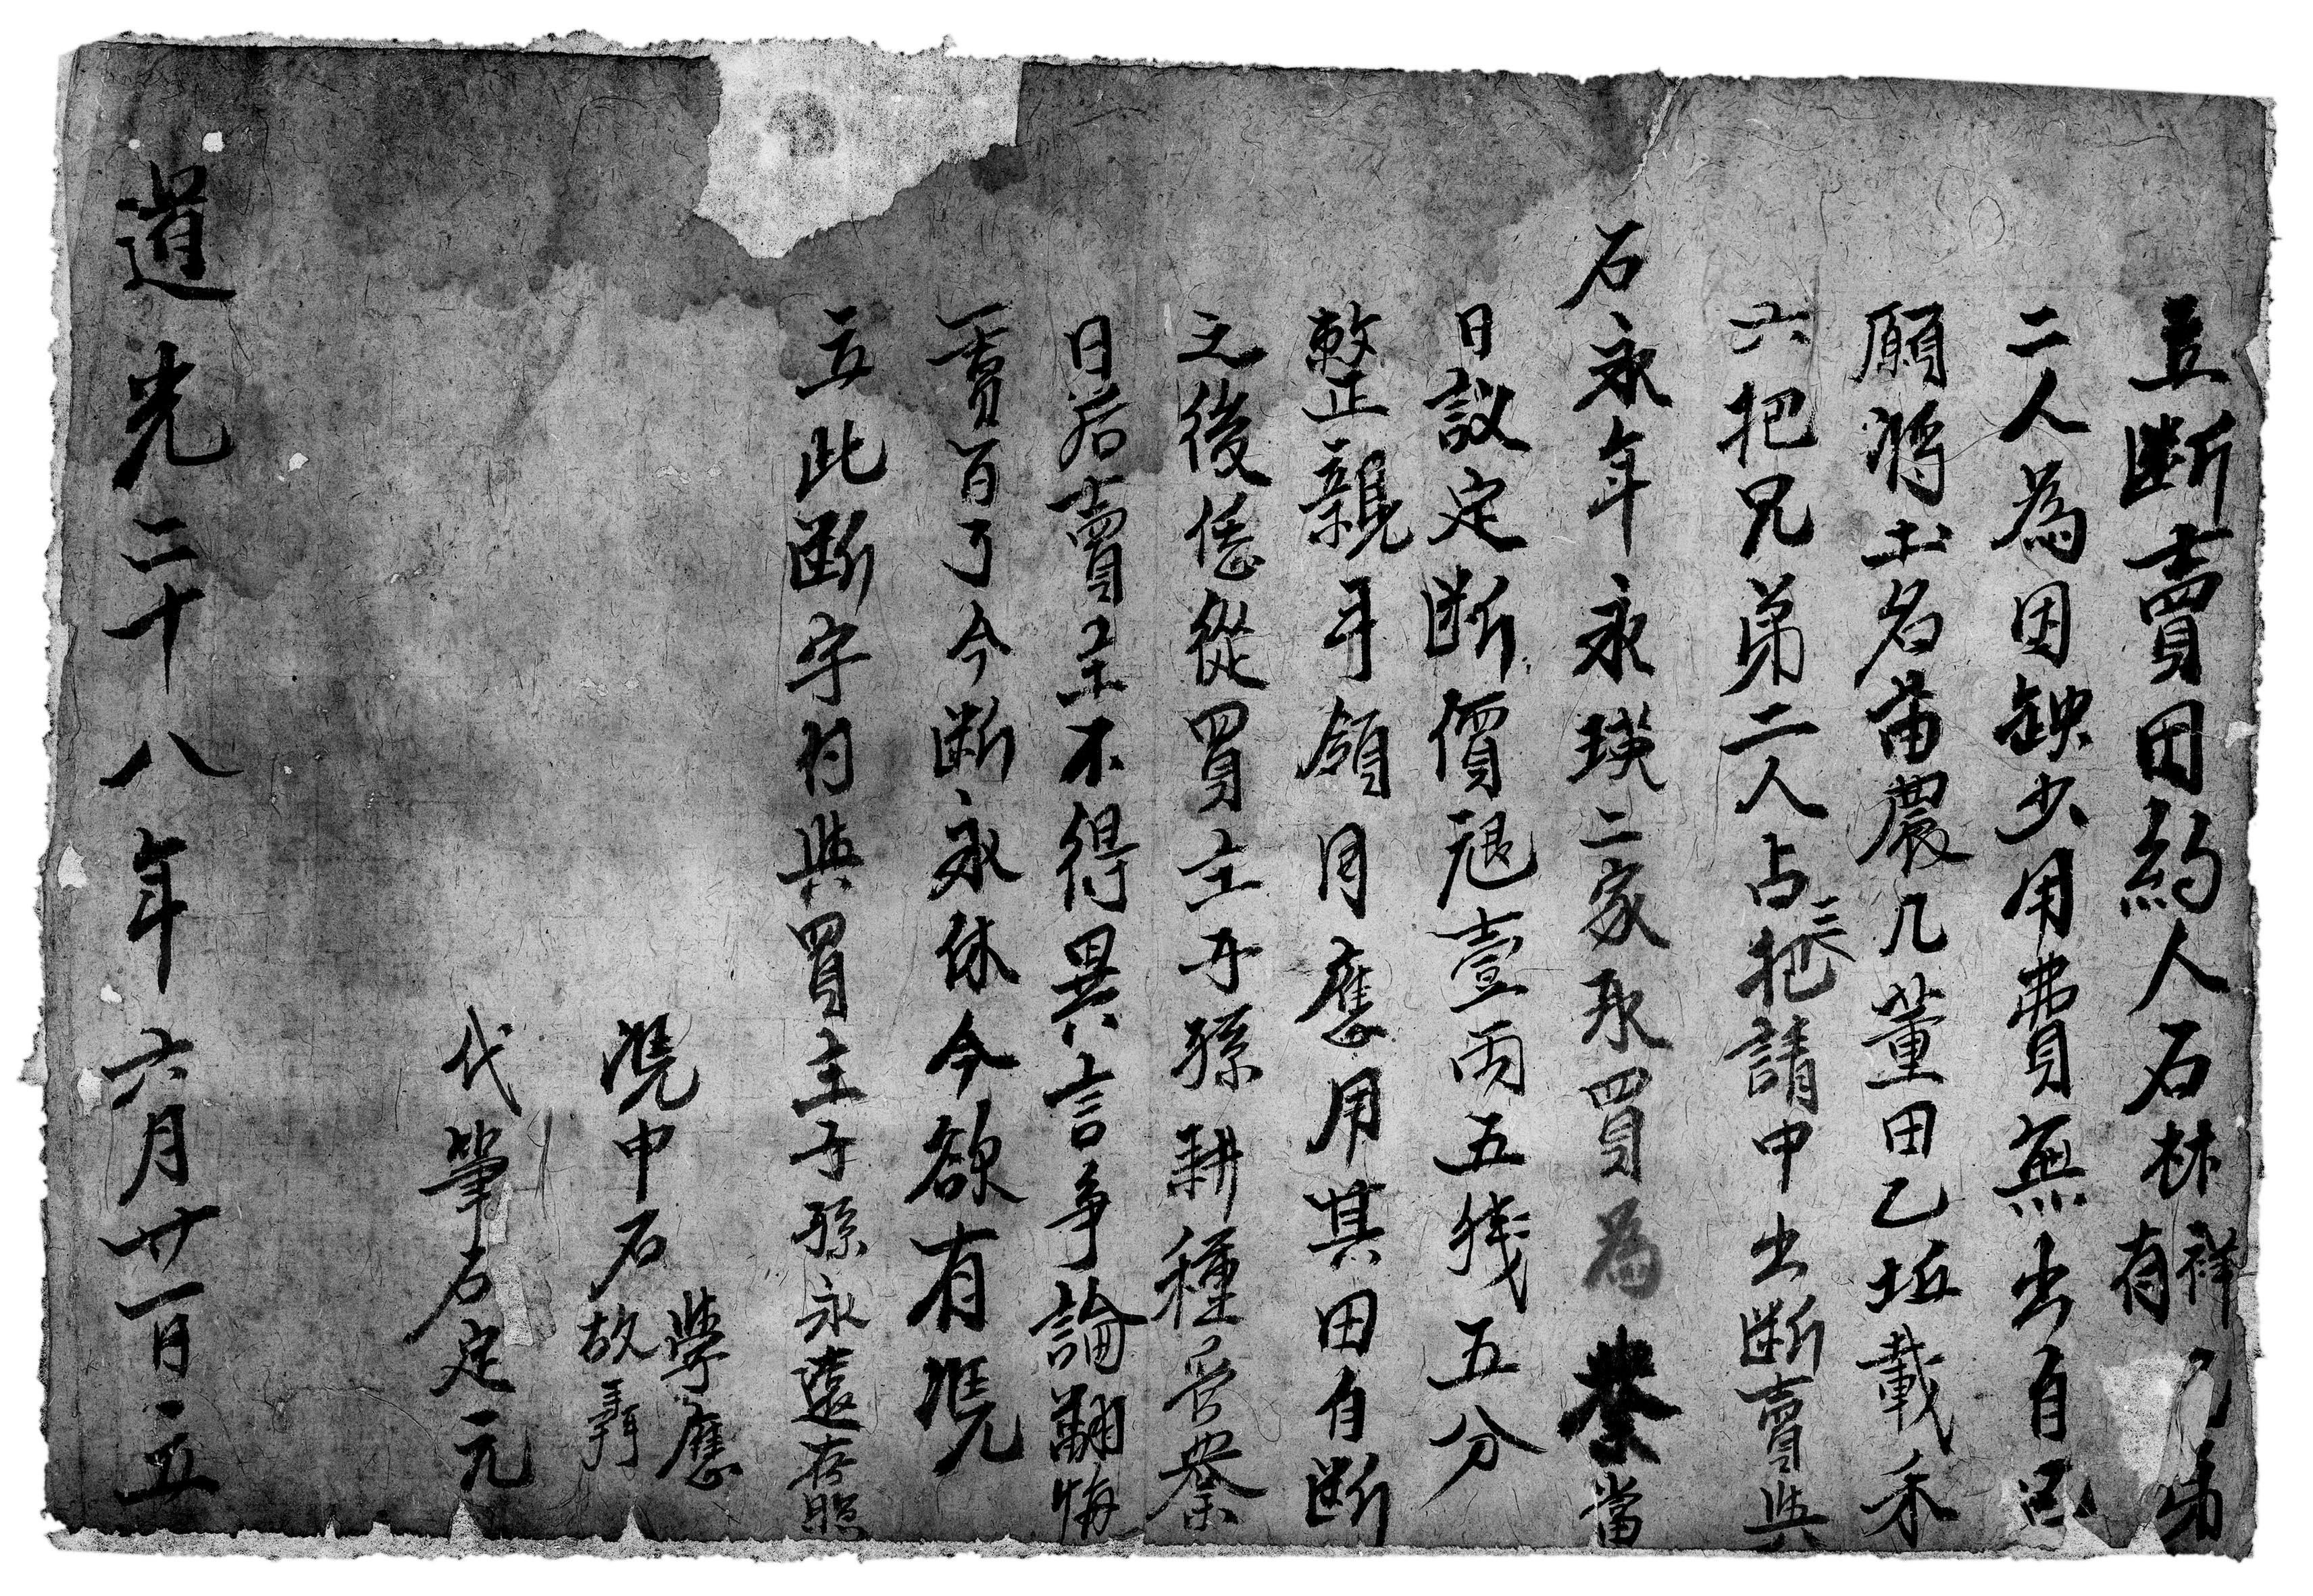 立断賣田約人石林祥有兄弟
二人為因缺少用費無出自己
願将土名苗農几董田乙坵載禾
六把兄弟二人占三把請中出断賣與
石永年永瑛二家承買為業當
日議定断價冠壹両五錢五分
整正親手領囘應用其田自断
之後恁從買主子孫耕種管業
日后賣主不得異言争論翻悔
一賣百了今断永休今欲有凴
立此断字付與買主子孫永遠存照
凴中石學應故
代筆石定元
道光二十八年六月廿一日立